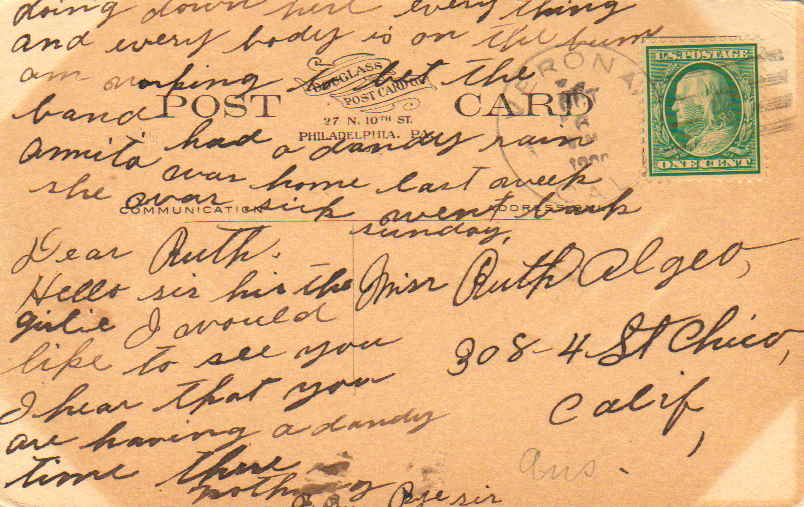 doing down here every thing
and every body is on the bum
am hoping to let the
band
DOUGLASS
POST CARD CO.
POST CARD
27 N. 10TH ST.
PHILADELPHIA, PA.
U.S. POSTAGE
ONE CENT
VERONA
had a dandy rain
was home last week
she was sick went back
sunday,
COMMUNICATION
ADDRESS
Dear Ruth.
Hello sir his the
girlie I would
like to see you
I hear that you
are having a dandy
time there
nothing
Bye sir
Miss Ruth Algeo,
308-4 St Chico,
Calif,
Ans.